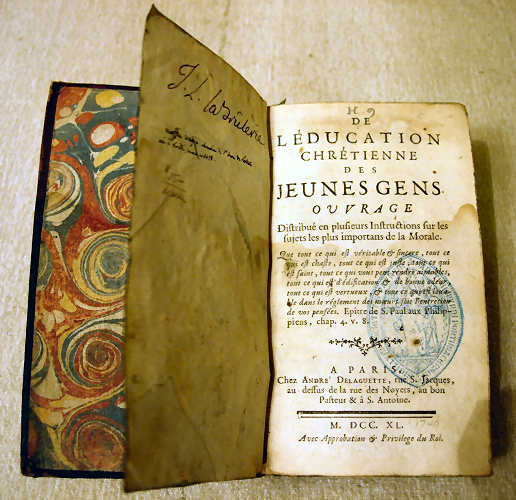 J. L. la Brûlerie
H 9
DE
L'ÉDUCATION
CHRÉTIENNE
DES
JEUNES GENS.
OUVRAGE
Distribué en plusieurs Instructions sur les
sujets les plus importans de la Morale.
Que tout ce qui est véritable & sincere, tout ce
qui est chaste, tout ce qui est juste, tout ce qui
est saint, tout ce qui vous peut rendre aimables,
tout ce qui est d'édification & de bonne odeur,
tout ce qui est vertueux, & tout ce qui est loua-
ble dans le réglement des mœurs soit l'entretien
de vos pensées. Epitre de S. Paul aux Philip-
piens, chap. 4. v. 8.
A PARIS,
Chez ANDRE' DELAGUETTE, rue S. Jacques,
au-dessus de la rue des Noyers, au bon
Pasteur & à S. Antoine.
M. DCC. XL.
Avec Approbation & Privilege du Roi.